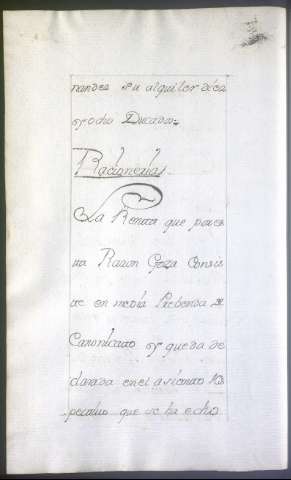 nandez su alquiler diez
y ocho Ducados
Racioneria
La Renta que por es
ta Razon Goza Consis
te en media Prebenda
Canonicato y queda de
clarada en el asiento
que se ha echo